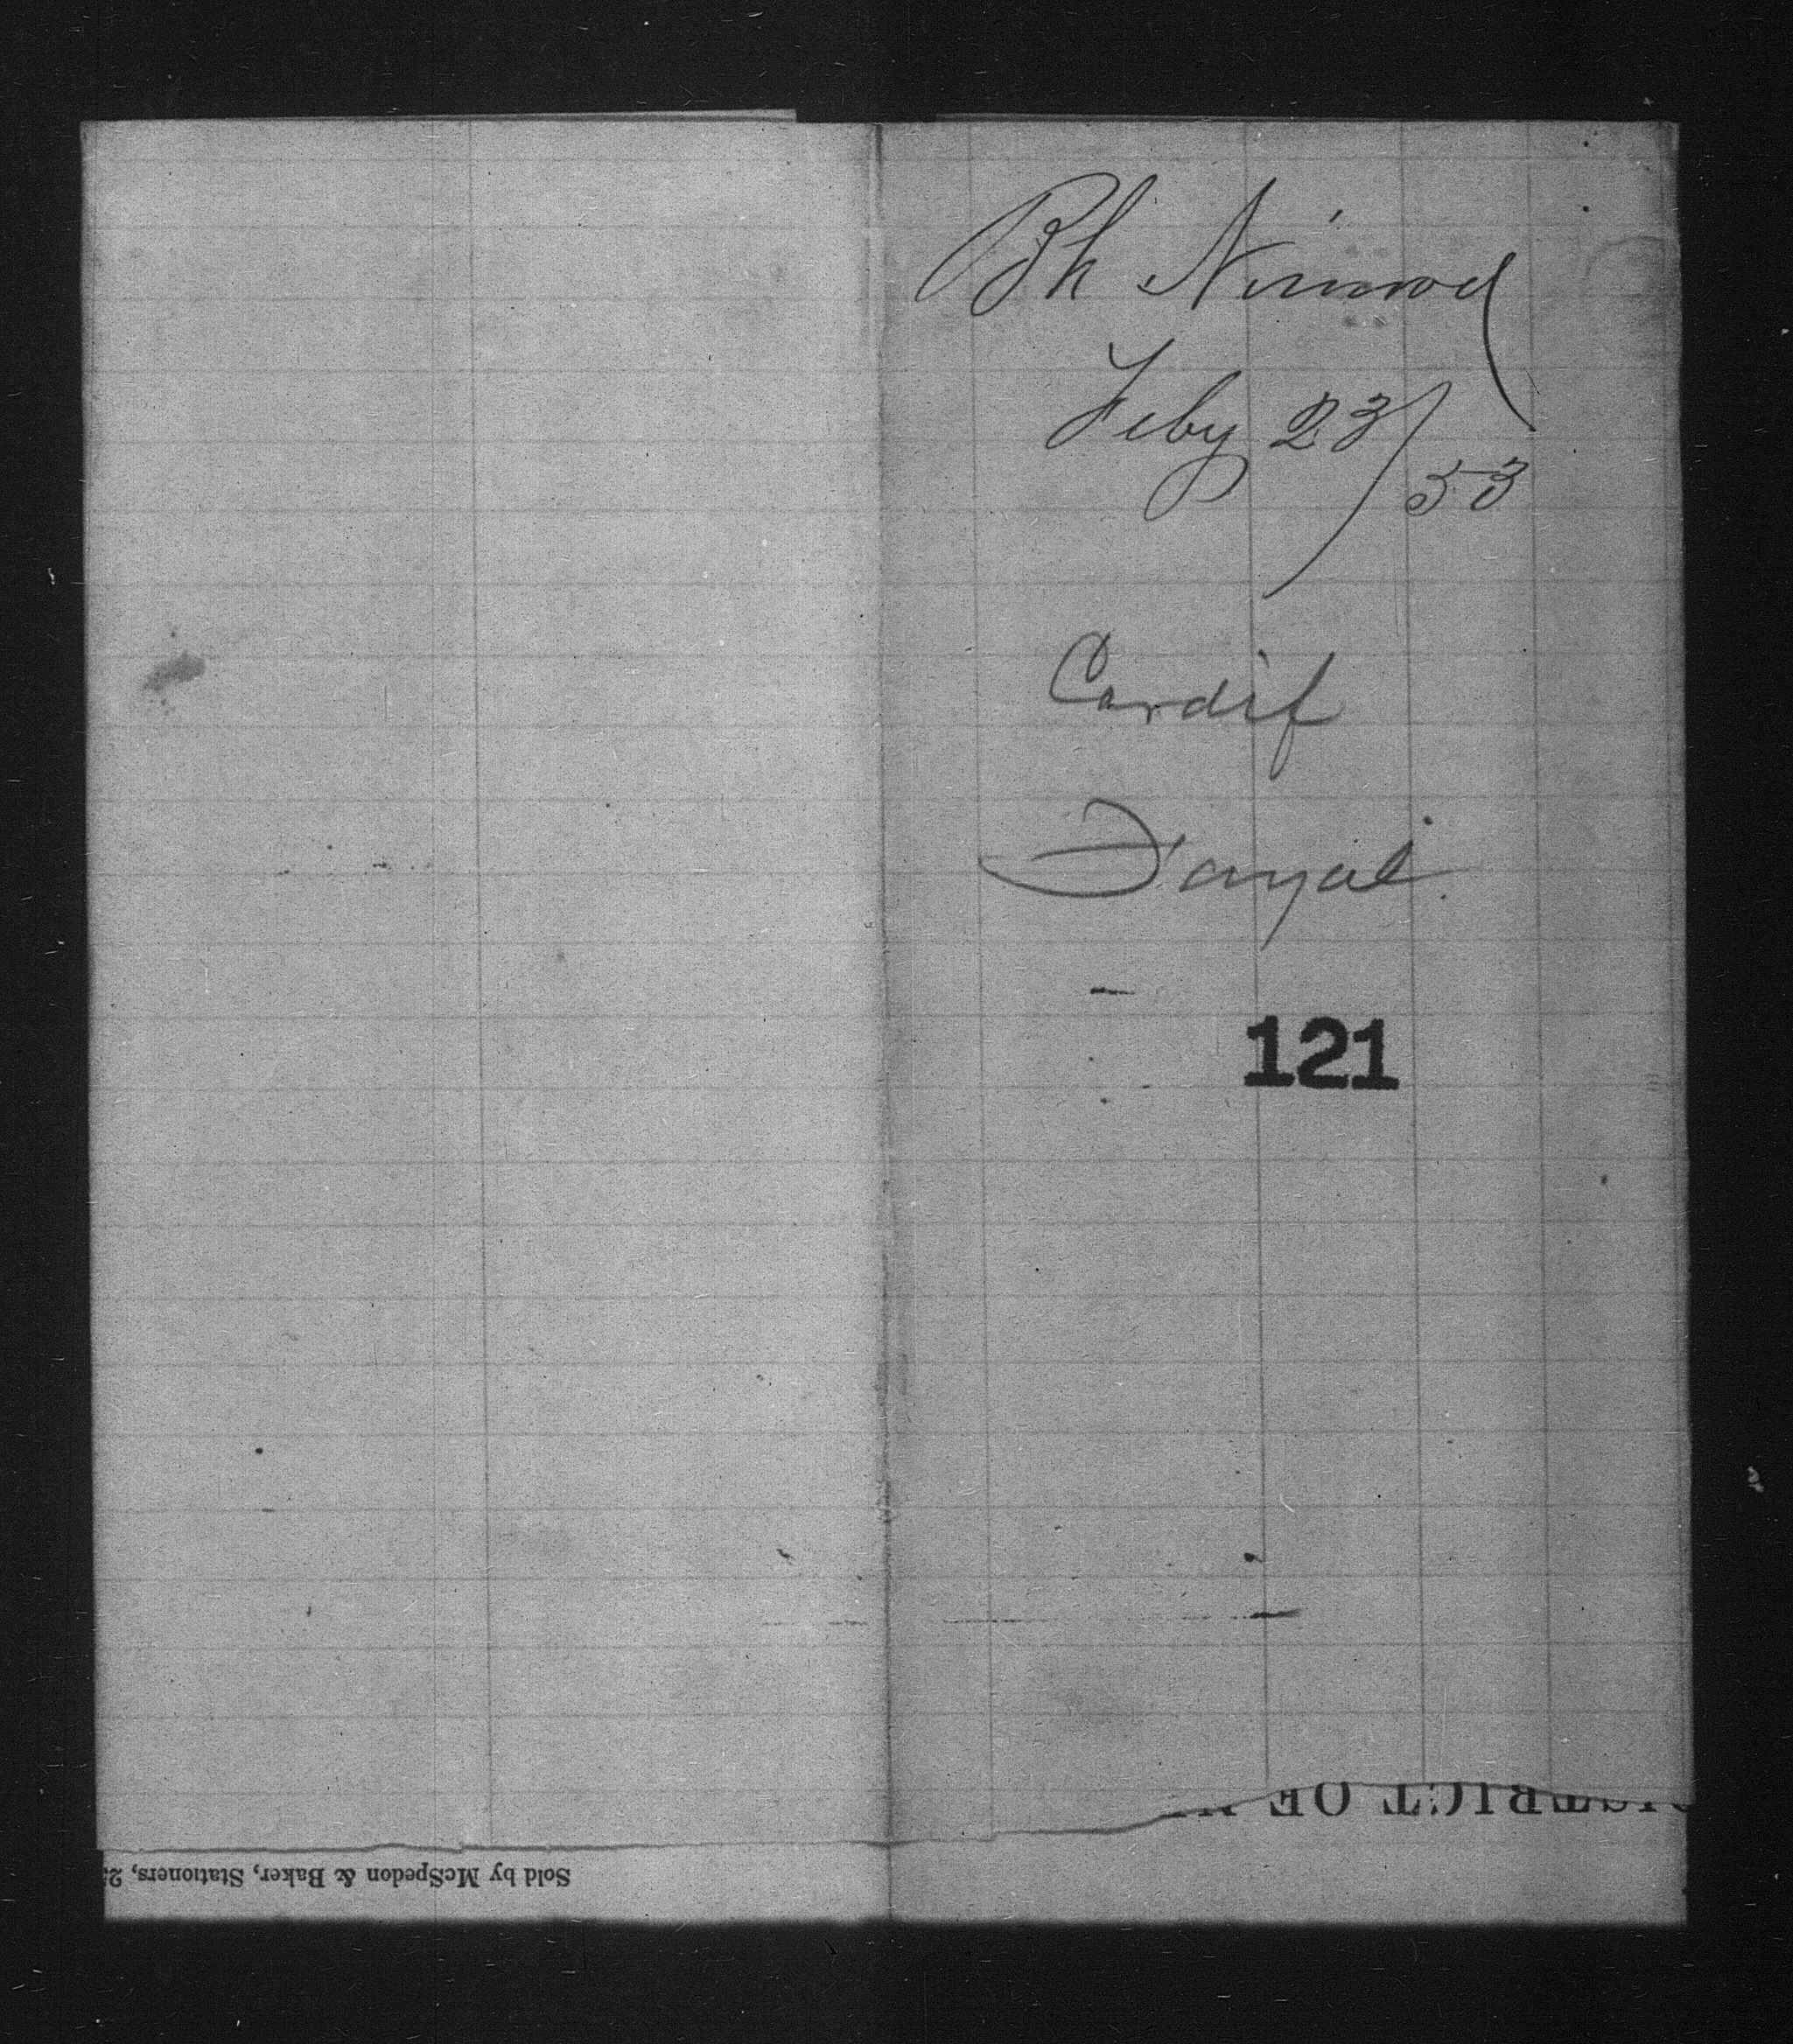 Bk Nimrod
Feby 23/53
Cardif
Fayal
121
DISTRICT OF
Sold by McSpedon & Baker, Stationers, 2